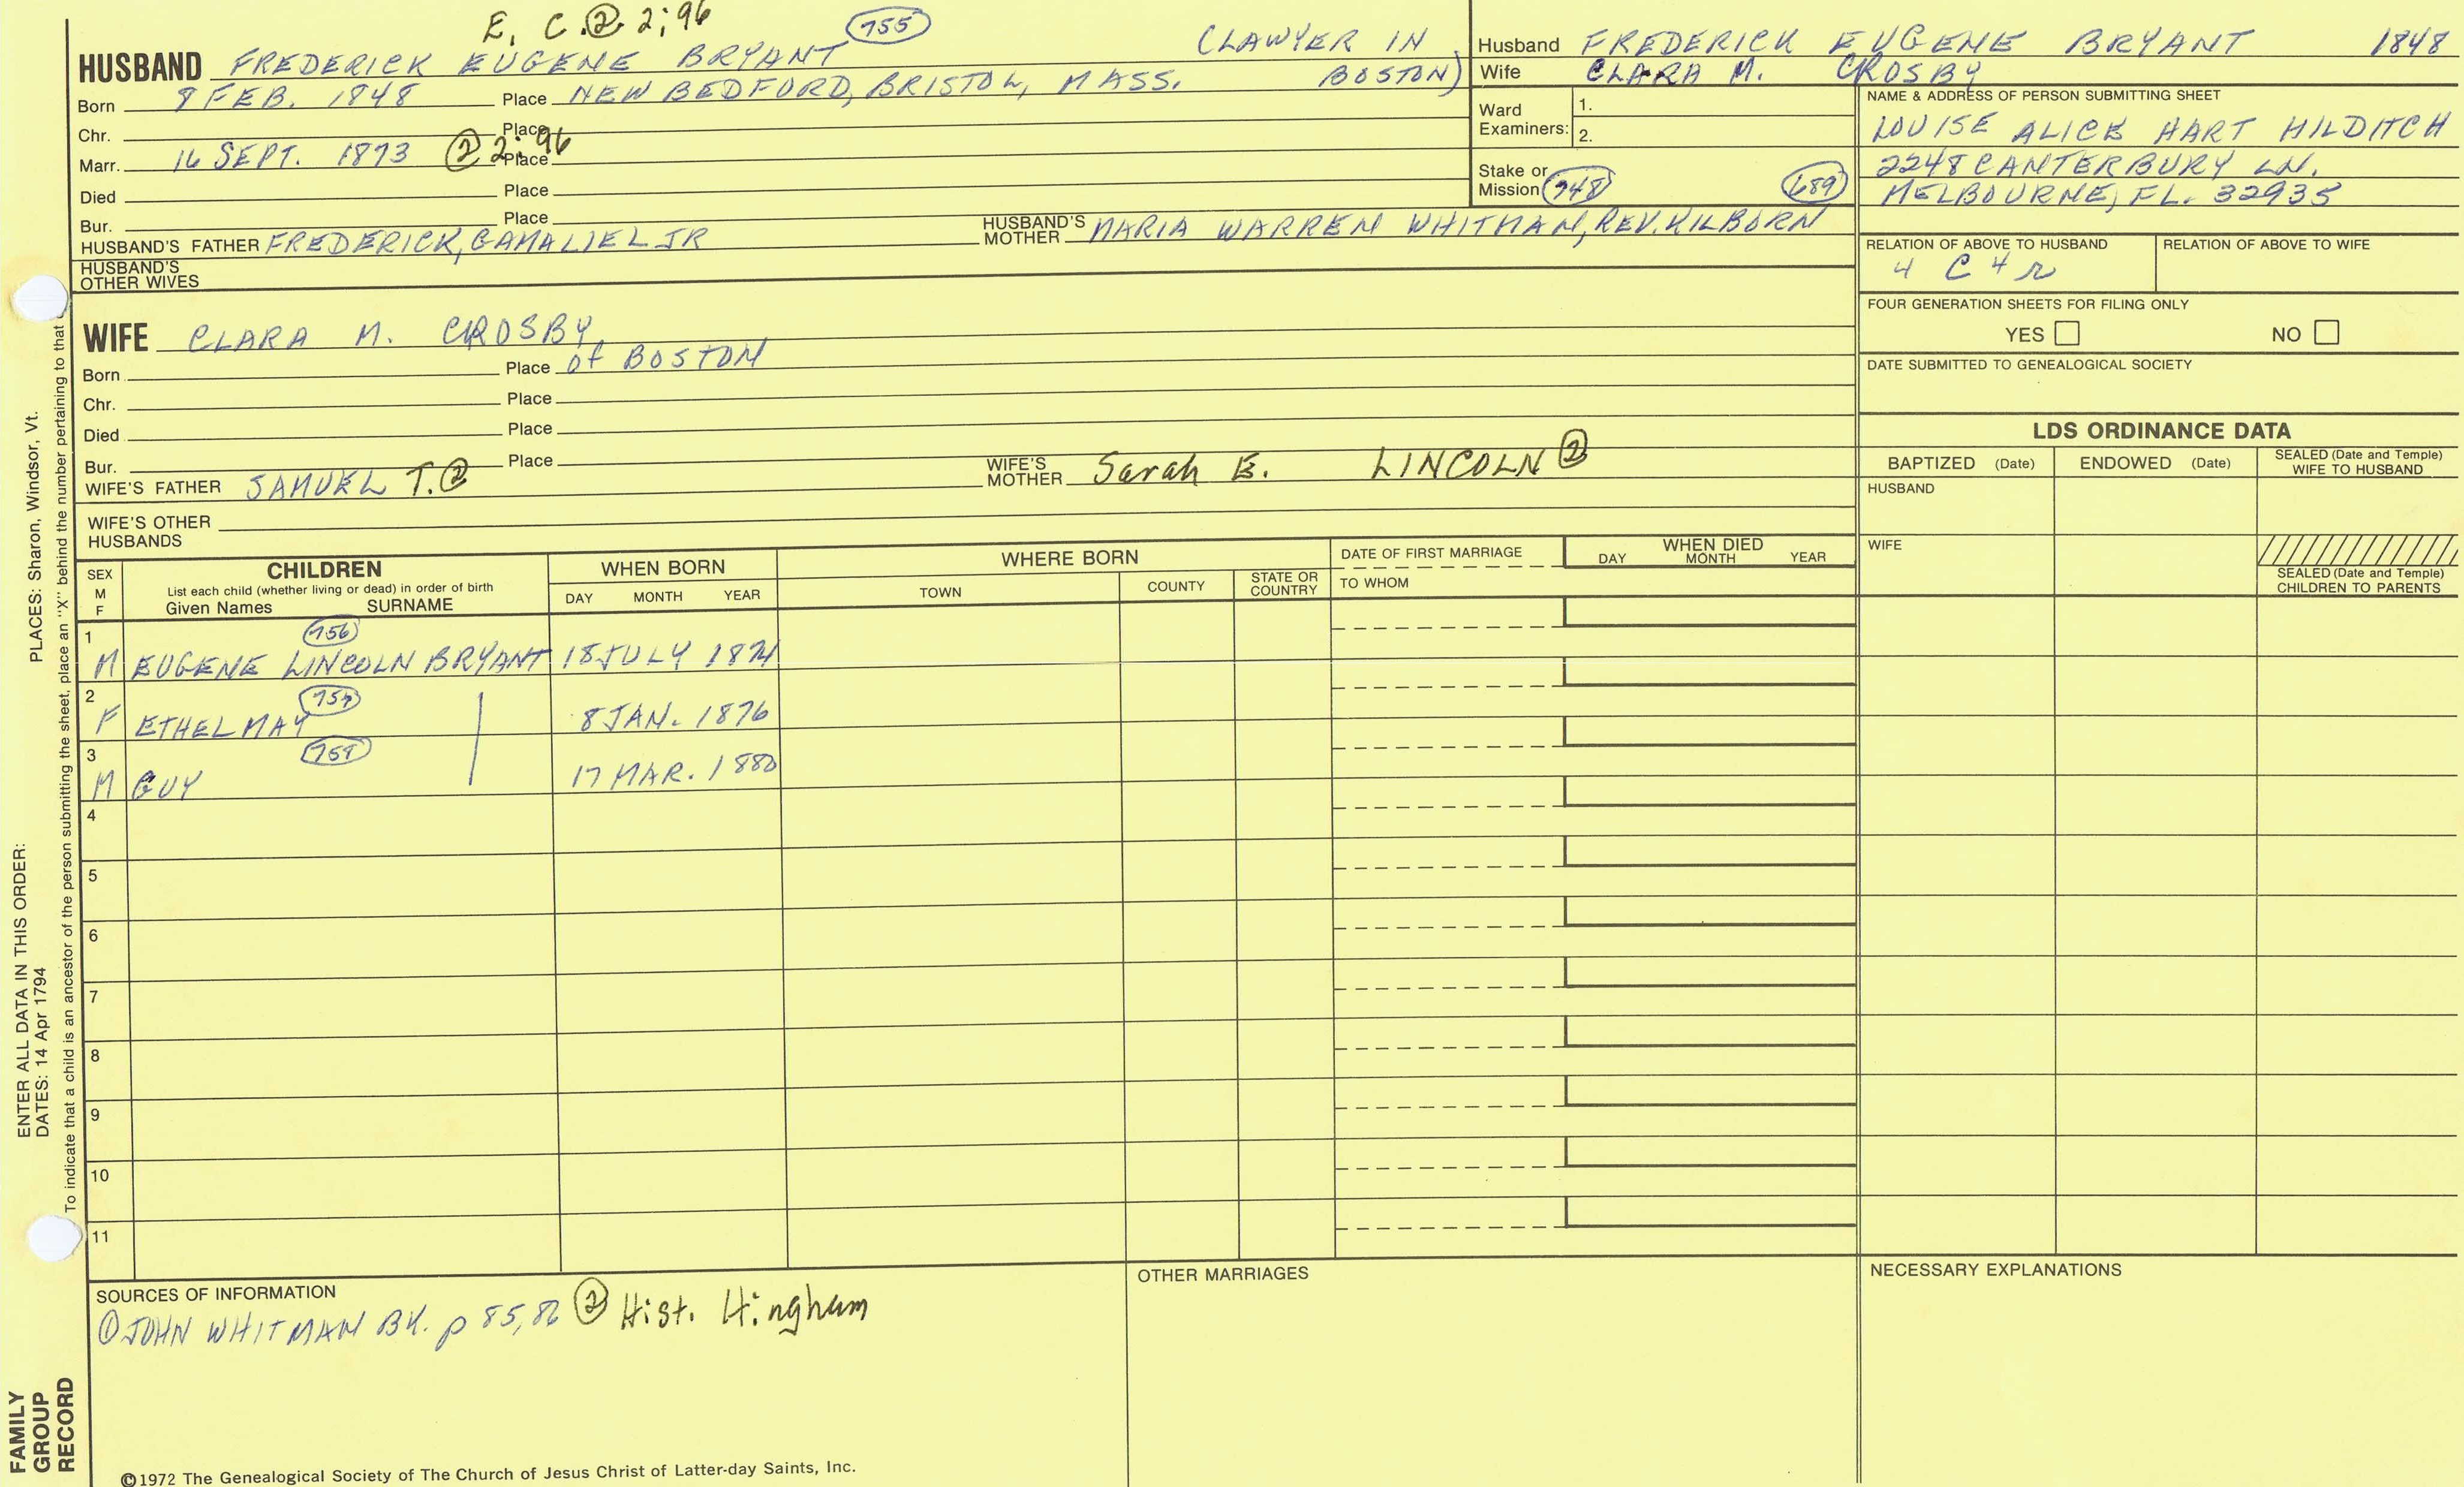 E. C. ② 2; 96
HUSBAND FREDERICK EUGENE BRYANT 755 (LAWYER IN BOSTON)
Born 8 FEB. 1848 Place NEW BEDFORD, BRISTOL, MASS.
Chr. Place
Marr. 16 SEPT. 1873 ② 2; 96 Place
Died Place
Bur. Place
HUSBAND'S FATHER FREDERICK, GAMALIEL JR HUSBAND'S MOTHER MARIA WARREN WHITMAN, REV. KILBORN
HUSBAND'S OTHER WIVES
WIFE CLARA M. CROSBY
Born Place of BOSTON
Chr. Place
Died Place
Bur. Place
WIFE'S FATHER SAMUEL T. ② WIFE'S MOTHER Sarah E. LINCOLN ②
WIFE'S OTHER HUSBANDS
Husband FREDERICK EUGENE BRYANT 1848
Wife CLARA M. CROSBY
Ward Examiners: 1.
2.
Stake or Mission 748 689
NAME & ADDRESS OF PERSON SUBMITTING SHEET
LOUISE ALICE HART HILDITCH
2248 CANTERBURY LN.
MELBOURNE, FL. 32935
RELATION OF ABOVE TO HUSBAND RELATION OF ABOVE TO WIFE
4 C 4 r
FOUR GENERATION SHEETS FOR FILING ONLY
YES NO
DATE SUBMITTED TO GENEALOGICAL SOCIETY
LDS ORDINANCE DATA
BAPTIZED (Date) ENDOWED (Date) SEALED (Date and Temple) WIFE TO HUSBAND
HUSBAND
WIFE
SEALED (Date and Temple) CHILDREN TO PARENTS
SEX M F CHILDREN WHEN BORN WHERE BORN DATE OF FIRST MARRIAGE WHEN DIED
List each child (whether living or dead) in order of birth
Given Names SURNAME DAY MONTH YEAR TOWN COUNTY STATE OR COUNTRY TO WHOM DAY MONTH YEAR
1 756
M EUGENE LINCOLN BRYANT 18 JULY 1874
2 757
F ETHEL MAY 8 JAN. 1876
3 758
M GUY 17 MAR. 1880
4
5
6
7
8
9
10
11
SOURCES OF INFORMATION
① JOHN WHITMAN BK. p 85, 86 ② Hist. Hingham
OTHER MARRIAGES
NECESSARY EXPLANATIONS
©1972 The Genealogical Society of The Church of Jesus Christ of Latter-day Saints, Inc.
FAMILY GROUP RECORD
ENTER ALL DATA IN THIS ORDER:
DATES: 14 Apr 1794
PLACES: Sharon, Windsor, Vt.
To indicate that a child is an ancestor of the person submitting the sheet, place an "X" behind the number pertaining to that